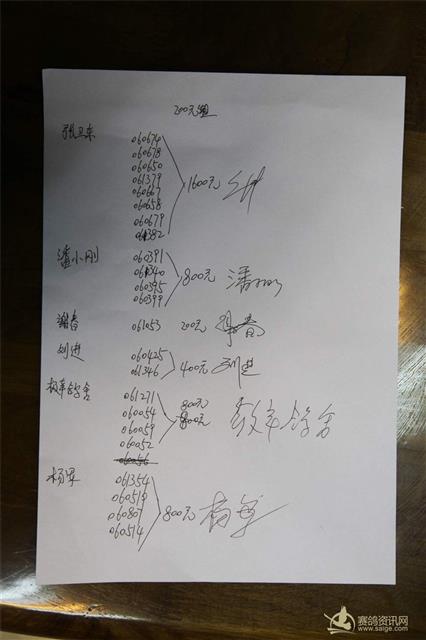 200元组
张卫东
060674
060678
060650
061379
060667
060658
060679
061382
1600元
潘小刚
060391
061340
060395
060399
800元 潘
谢春 061053 200元 谢春
刘进
060425
061346
400元 刘进
鸽舍
061271
060054
060059
060052
060056
800元
800元
鸽舍
杨军
061354
060519
060807
060514
800元 杨军
赛鸽资讯网
www.saige.com